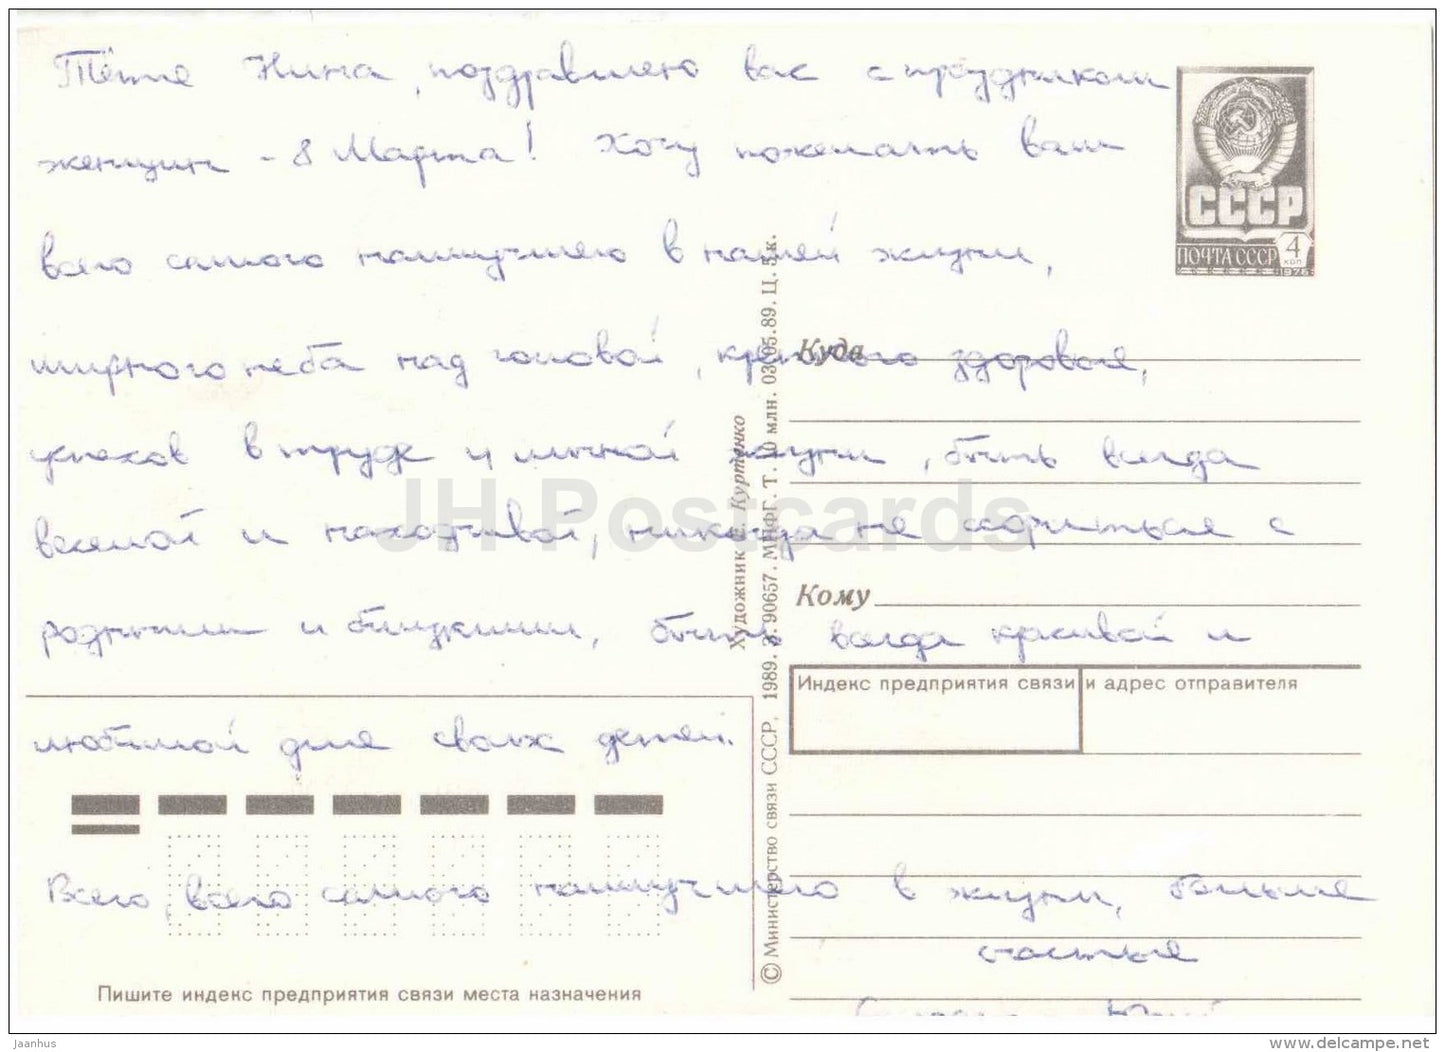 Тётя Нина, поздравляю вас с праздником
женщин - 8 Марта! Хочу пожелать вам
всего самого наилучшего в вашей жизни,
мирного неба над головой, крепкого здоровья,
успехов в труде и личной жизни, быть всегда
весёлой и находчивой, никогда не ссориться с
родными и близкими, быть всегда красивой и
любимой для своих детей.
Всего, всего самого наилучшего в жизни, больше
счастья
Юрий
СССР
ПОЧТА СССР 4 коп
1976
Куда
Кому
Индекс предприятия связи и адрес отправителя
Пишите индекс предприятия связи места назначения
Художник Куртенко
© Министерство связи СССР, 1989. З. 90657. МПФГ. Т. 10 млн. 03.05.89. Ц. 5 к.
JH Postcards
Jaanhus
www.delcampe.net